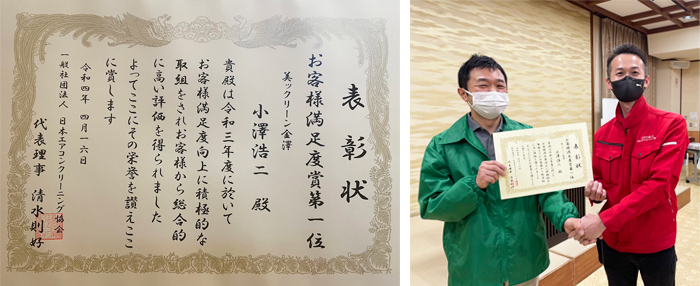 表彰状
お客様満足度賞第一位
美ックリーン金澤
小澤浩二 殿
貴殿は令和三年度に於いて
お客様満足度向上に積極的な
取組をされお客様から総合的
に高い評価を得られました
よってここにその栄誉を讃えここ
に賞します
令和四年 四月一六日
一般社団法人 日本エアコンクリーニング協会
代表理事 清水則好
表彰状